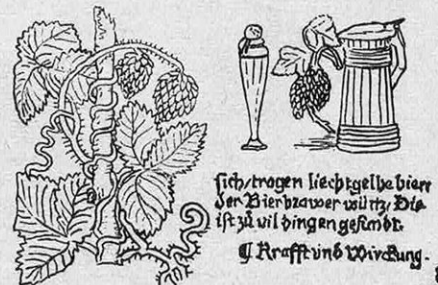 sich/trogen liechtgelbe bierr
der Bierbrawer würtz/Die
ist zů vil dingen gesundt.
¶ Krafft vnd Wirckung.